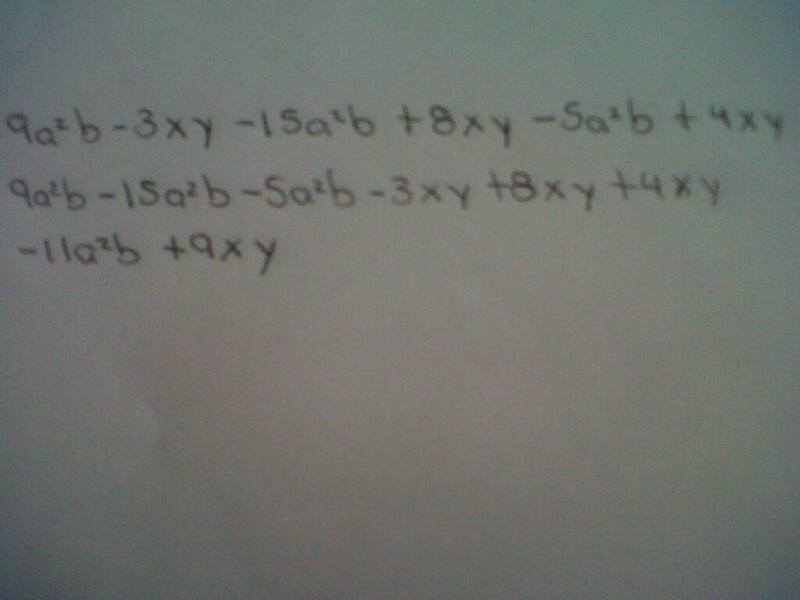 9a²b - 3xy - 15a²b + 8xy - 5a²b + 4xy
9a²b - 15a²b - 5a²b - 3xy + 8xy + 4xy
-11a²b + 9xy